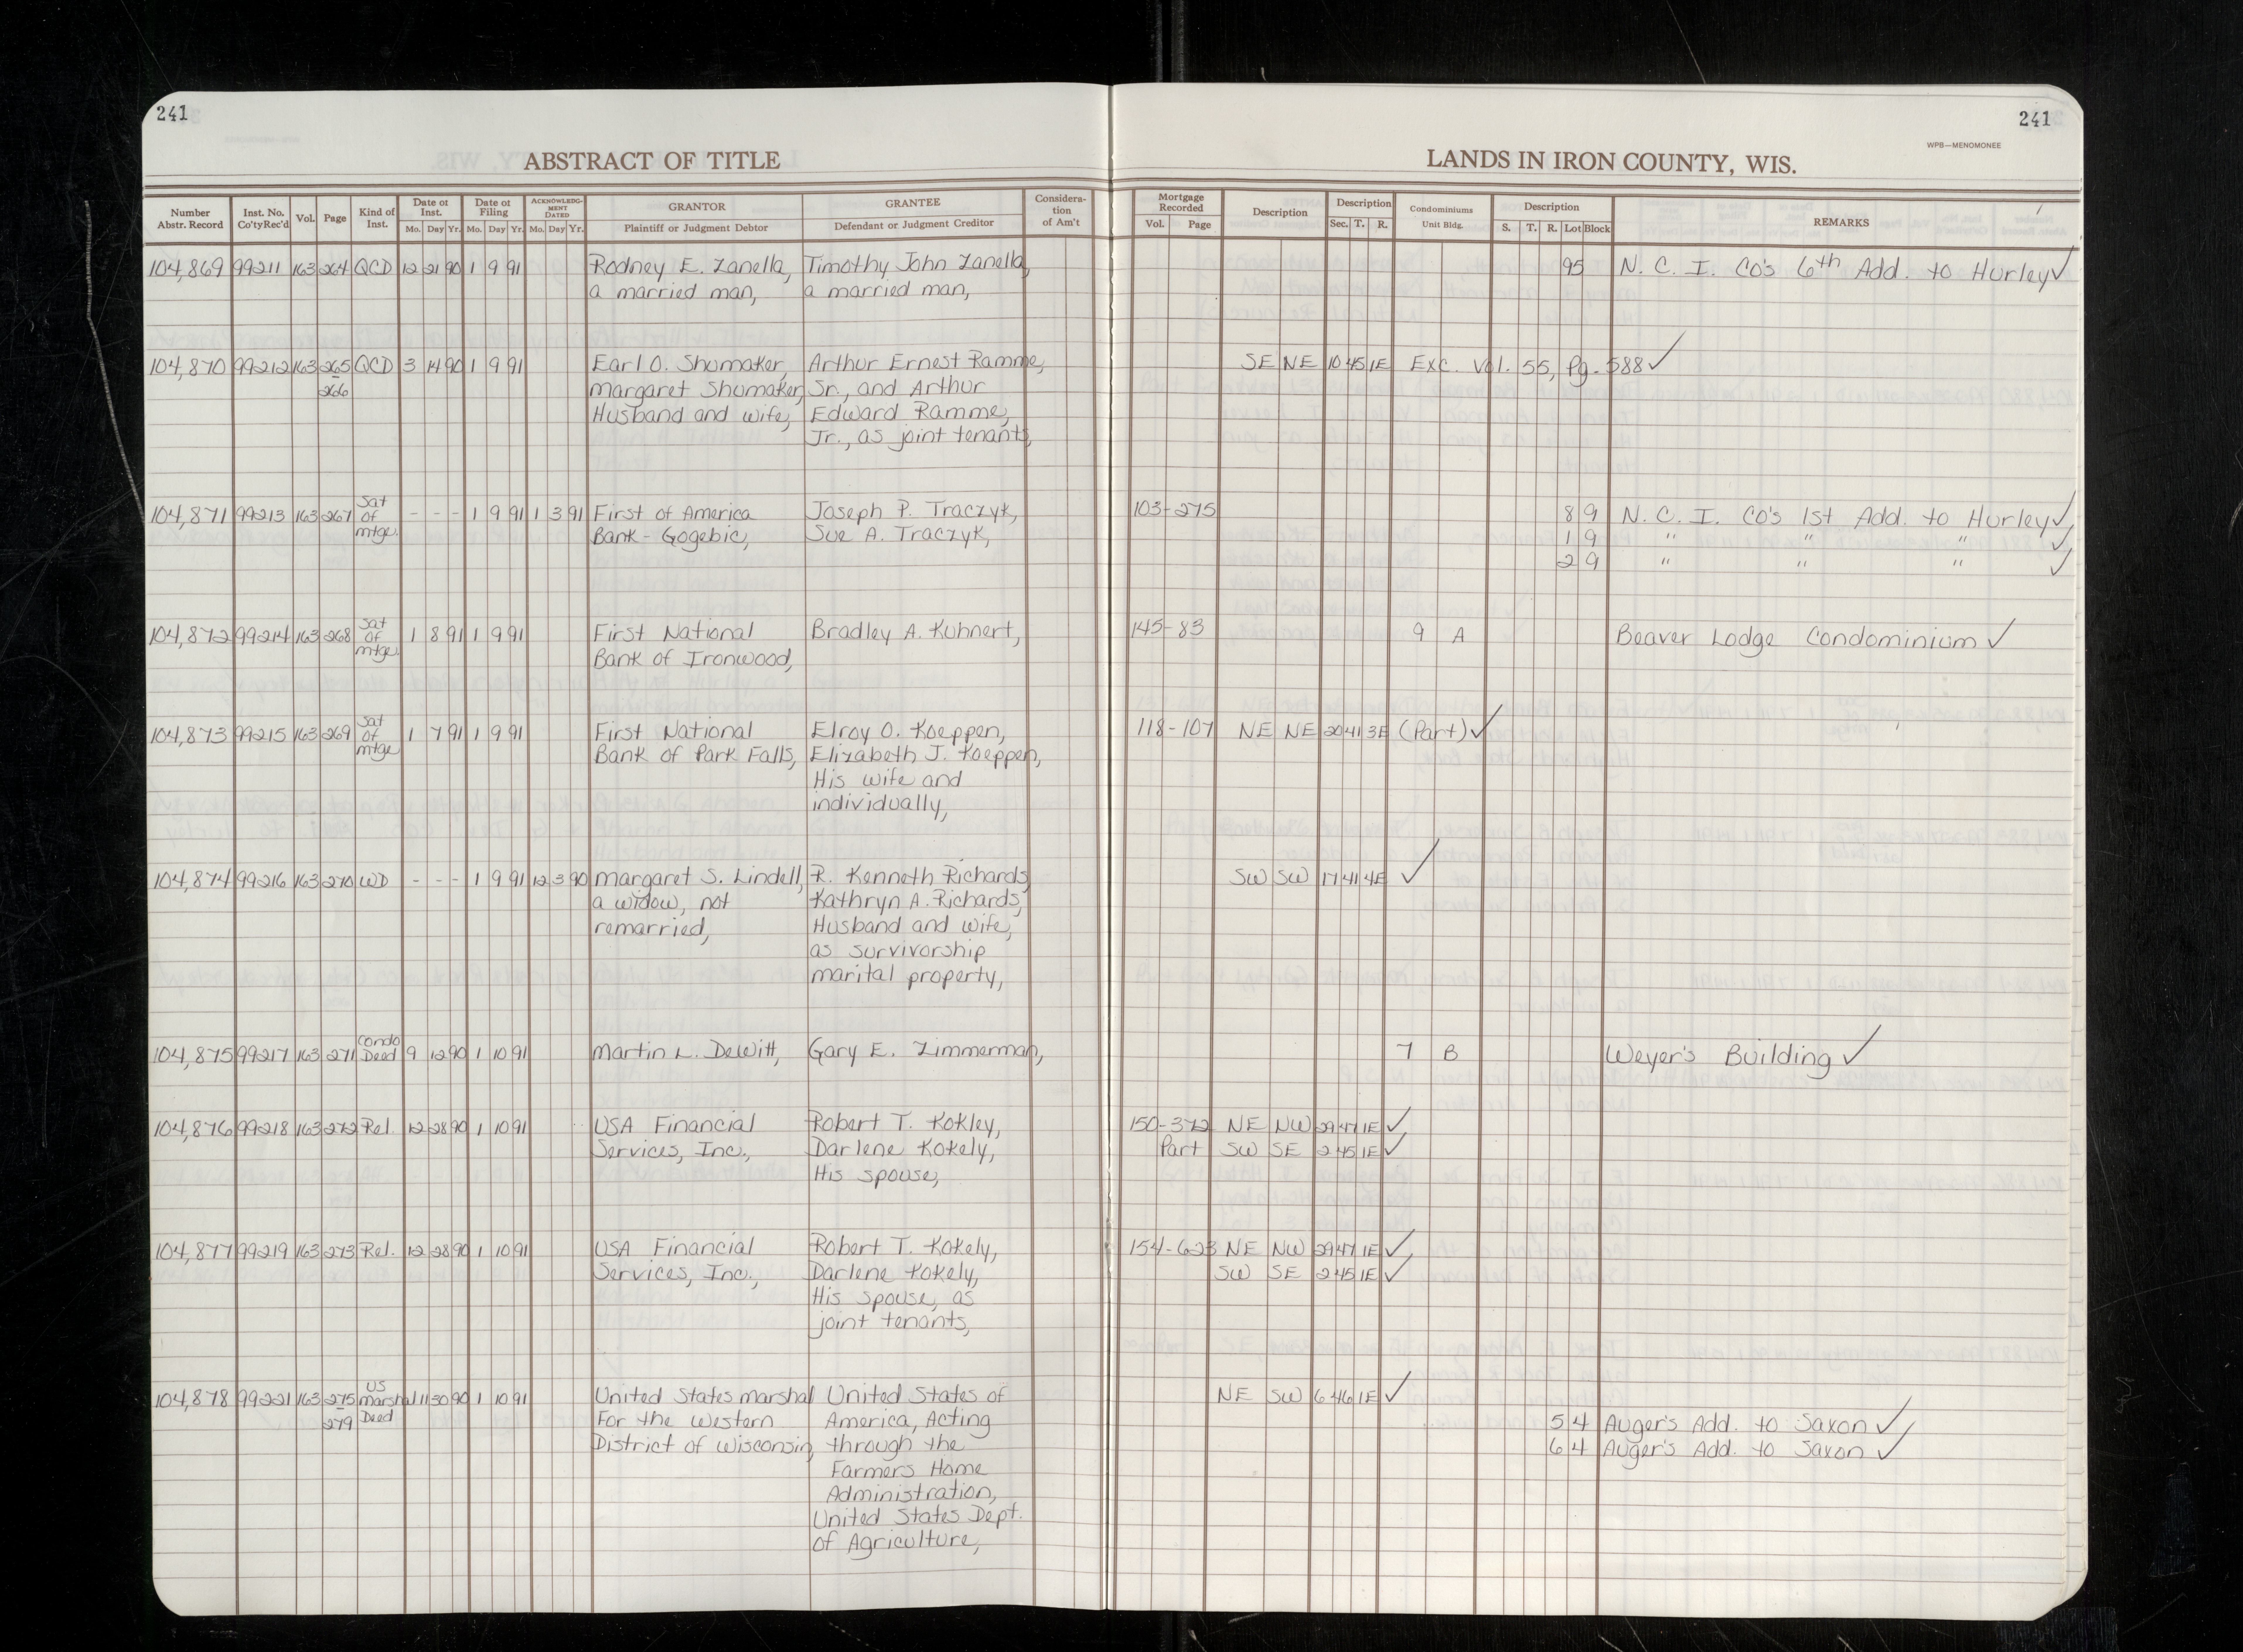 241
241
WPB—MENOMONEE
ABSTRACT OF TITLE
LANDS IN IRON COUNTY, WIS.
Number Abstr. Record | Inst. No. Co'ty Rec'd | Vol. | Page | Kind of Inst. | Date of Inst. Mo. Day Yr. | Date of Filing Mo. Day Yr. | ACKNOWLEDG-MENT DATED Mo. Day Yr. | GRANTOR Plaintiff or Judgment Debtor | GRANTEE Defendant or Judgment Creditor | Considera-tion of Am't | Mortgage Recorded Vol. Page | Description | Description Sec. T. R. | Condominiums Unit Bldg. | Description S. T. R. Lot Block | REMARKS
104,869 99211 163 264 QCD 12 21 90 1 9 91 Rodney E. Zanella, Timothy John Zanella, 95 N. C. I. Co's 6th Add. to Hurley ✓
a married man, a married man,
104,870 99212 163 265 QCD 3 14 90 1 9 91 Earl O. Shumaker, Arthur Ernest Ramme, SE NE 10 45 1E Exc. Vol. 55, Pg. 588 ✓
- 266 Margaret Shumaker, Sr., and Arthur
Husband and wife, Edward Ramme,
Jr., as joint tenants,
104,871 99213 163 267 Sat of mtge. - - - 1 9 91 1 3 91 First of America Joseph P. Traczyk, 103-275 8 9 N. C. I. Co's 1st Add. to Hurley ✓
Bank - Gogebic, Sue A. Traczyk, 1 9 " " " ✓
2 9 " " " ✓
104,872 99214 163 268 Sat of mtge. 1 8 91 1 9 91 First National Bradley A. Kuhnert, 145-83 9 A Beaver Lodge Condominium ✓
Bank of Ironwood,
104,873 99215 163 269 Sat of mtge 1 7 91 1 9 91 First National Elroy O. Koeppen, 118-107 NE NE 20 41 3E (Part) ✓
Bank of Park Falls, Elizabeth J. Koeppen,
His wife and
individually,
104,874 99216 163 270 WD - - - 1 9 91 12 3 90 Margaret S. Lindell, R. Kenneth Richards, SW SW 17 41 4E ✓
a widow, not Kathryn A. Richards,
remarried, Husband and wife,
as survivorship
marital property,
104,875 99217 163 271 Condo Deed 9 12 90 1 10 91 Martin L. DeWitt, Gary E. Zimmerman, 7 B Weyer's Building ✓
104,876 99218 163 272 Rel. 12 28 90 1 10 91 USA Financial Robert T. Kokley, 150-372 NE NW 29 47 1E ✓
Services, Inc., Darlene Kokely, Part SW SE 2 45 1E ✓
His spouse,
104,877 99219 163 273 Rel. 12 28 90 1 10 91 USA Financial Robert T. Kokely, 154-623 NE NW 29 47 1E ✓
Services, Inc., Darlene Kokely, SW SE 2 45 1E ✓
His spouse, as
joint tenants,
104,878 99221 163 275 US Marshal Deed 11 30 90 1 10 91 United States marshal United States of NE SW 6 46 1E ✓
- 279 For the Western America, Acting 5 4 Auger's Add. to Saxon ✓
District of Wisconsin, through the 6 4 Auger's Add. to Saxon ✓
Farmers Home
Administration,
United States Dept.
of Agriculture,